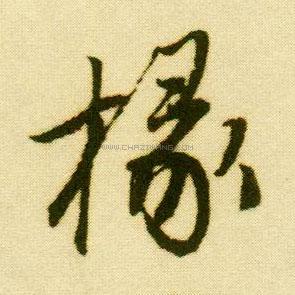 椽
WWW.CHAZIWANG.COM